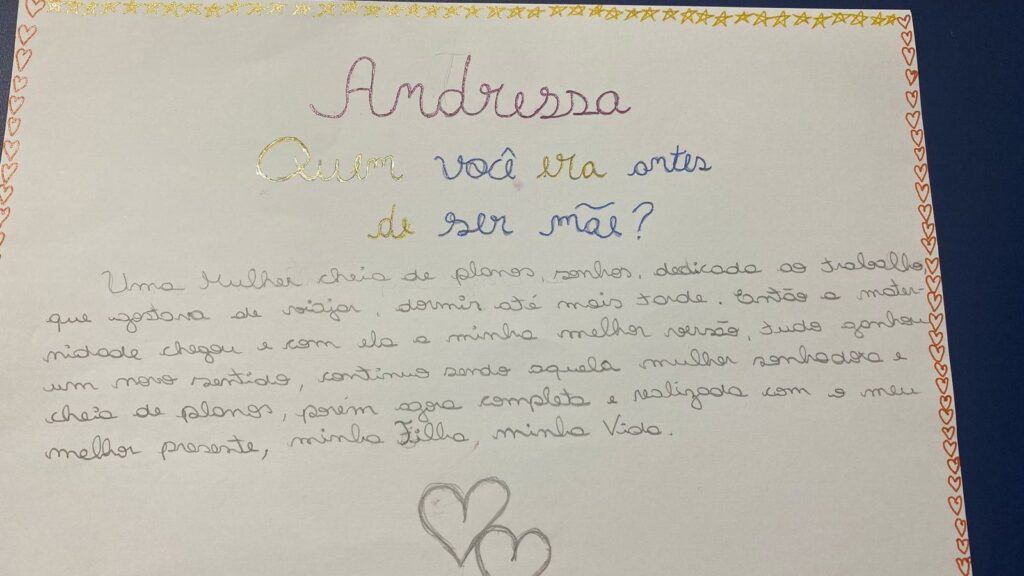 Andressa
Quem você era antes
de ser mãe?
Uma Mulher cheia de planos, sonhos, dedicada ao trabalho
que gostava de viajar, dormir até mais tarde. Então a mater-
nidade chegou e com ela a minha melhor versão, tudo ganhou
um novo sentido, continuo sendo aquela mulher sonhadora e
cheia de planos, porém agora completa e realizada com o meu
melhor presente, minha Filha, minha Vida.